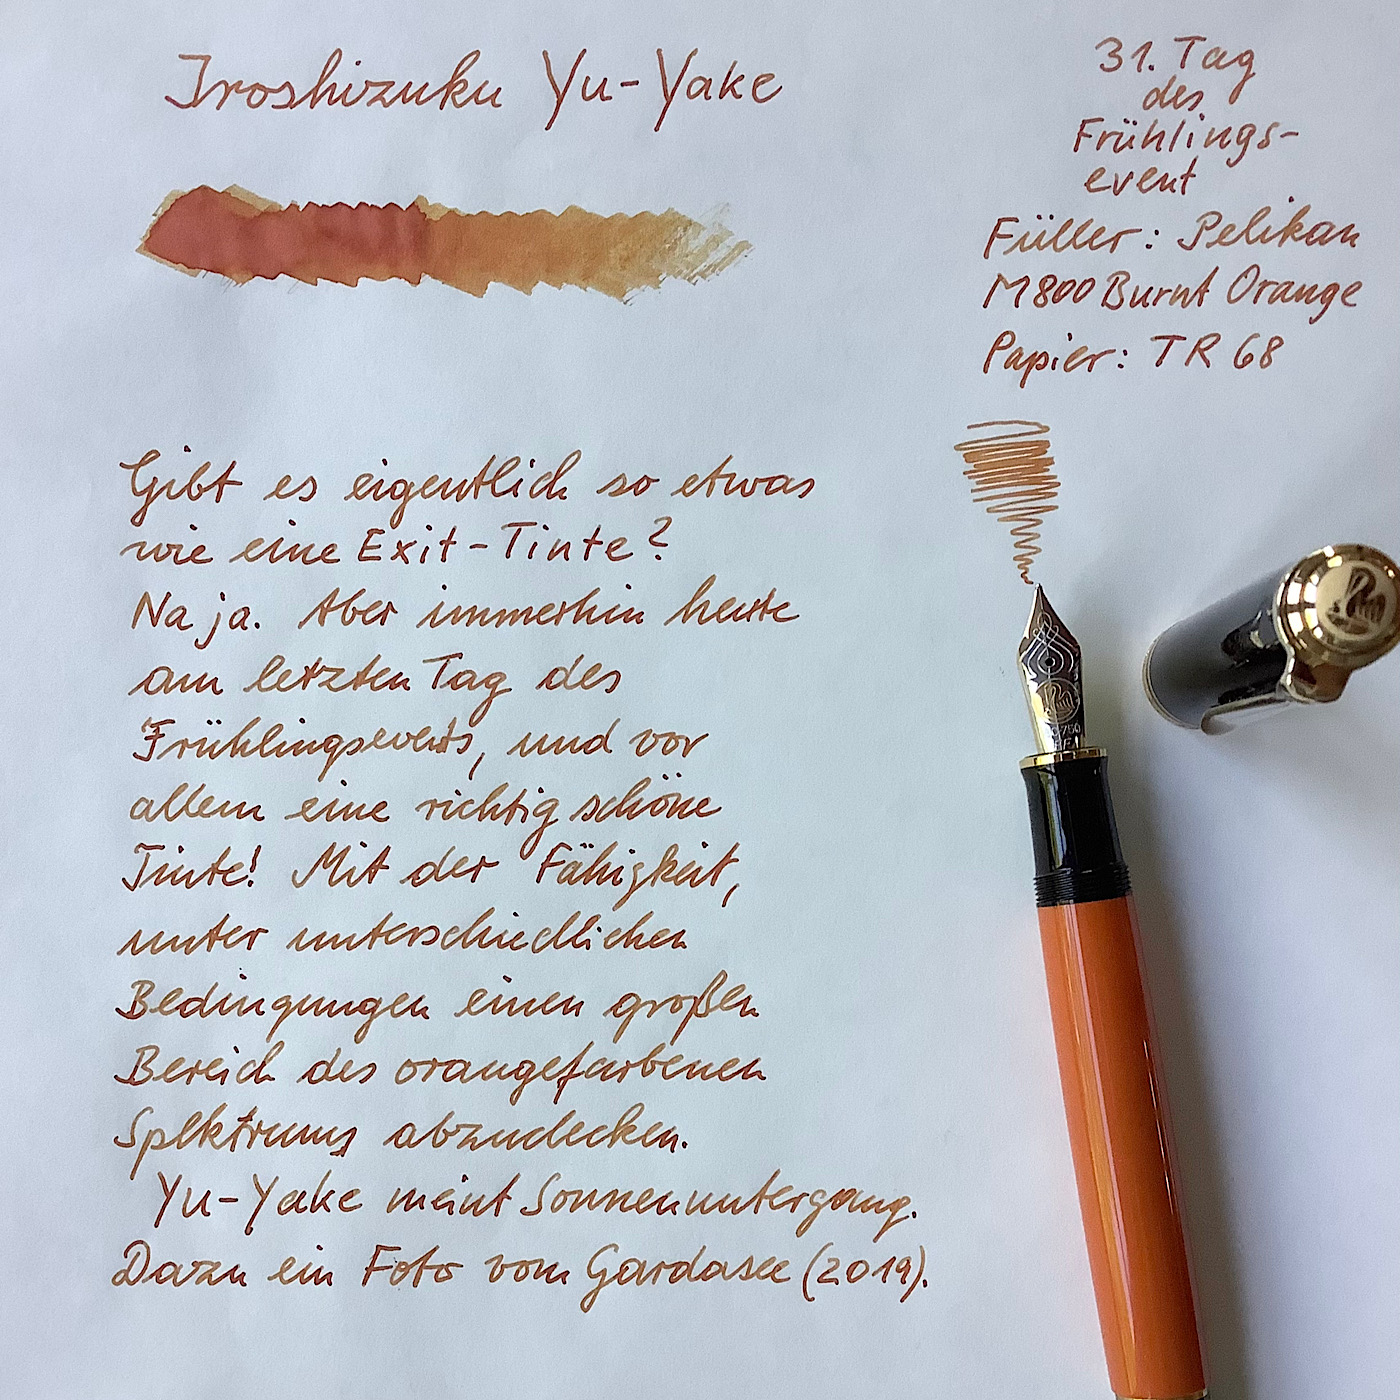 Iroshizuku Yu-Yake
31. Tag
des
Frühlings-
event
Füller: Pelikan
M800 Burnt Orange
Papier: TR 68
Gibt es eigentlich so etwas
wie eine Exit-Tinte?
Na ja. Aber immerhin heute
am letzten Tag des
Frühlingsevents, und vor
allem eine richtig schöne
Tinte! Mit der Fähigkeit,
unter unterschiedlichen
Bedingungen einen großen
Bereich des orangefarbenen
Spektrums abzudecken.
Yu-Yake meint Sonnenuntergang.
Dazu ein Foto vom Gardasee (2019).